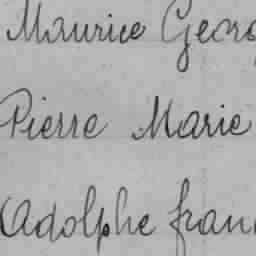 Maurice Georg
Pierre Marie
Adolphe fran